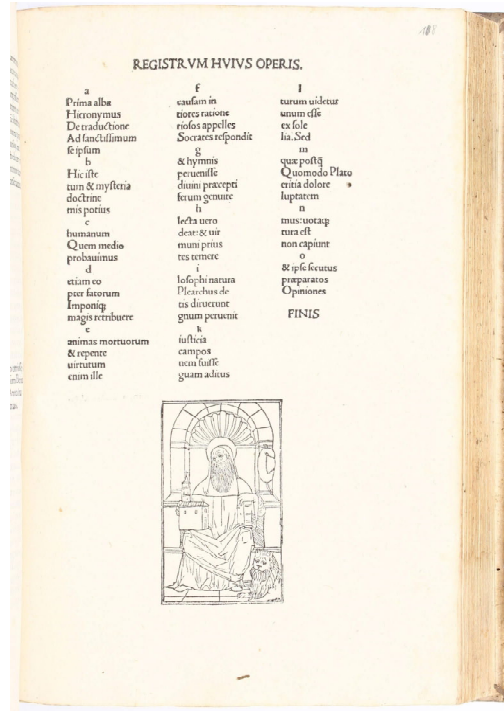 REGISTRVM HVIVS OPERIS.
a
Prima alba
Hieronymus
De traductione
Ad sanctissimum
se ipsum
b
Hic iste
tum & mysteria
doctrine
mis potius
c
humanum
Quem medio
probauimus
d
etiam eo
pter fatorum
Imponiq;
magis retribuere
e
animas mortuorum
& repente
uirtutum
enim ille
f
causam in
tiores ratione
riosos appelles
Socrates respondit
g
& hymnis
peruenisse
diuini præcepti
ferum genuite
h
lecta uero
deat: & uir
muni prius
tes temere
i
losophi natura
Plearchus de
tis diruerunt
gnum peruenit
k
iusticia
campos
uem fuisse
guam aditus
l
turum uidetur
unum esse
ex sole
lia. Sed
m
quæ postq̃
Quomodo Plato
critia dolore
luptatem
n
mus: uotaq;
tura est
non capiunt
o
& ipse secutus
præparatos
Opiniones
FINIS